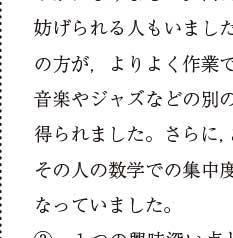 妨げられる人もいました
の方が，よりよく作業で
音楽やジャズなどの別の
得られました。さらに，
その人の数学での集中度
なっていました。